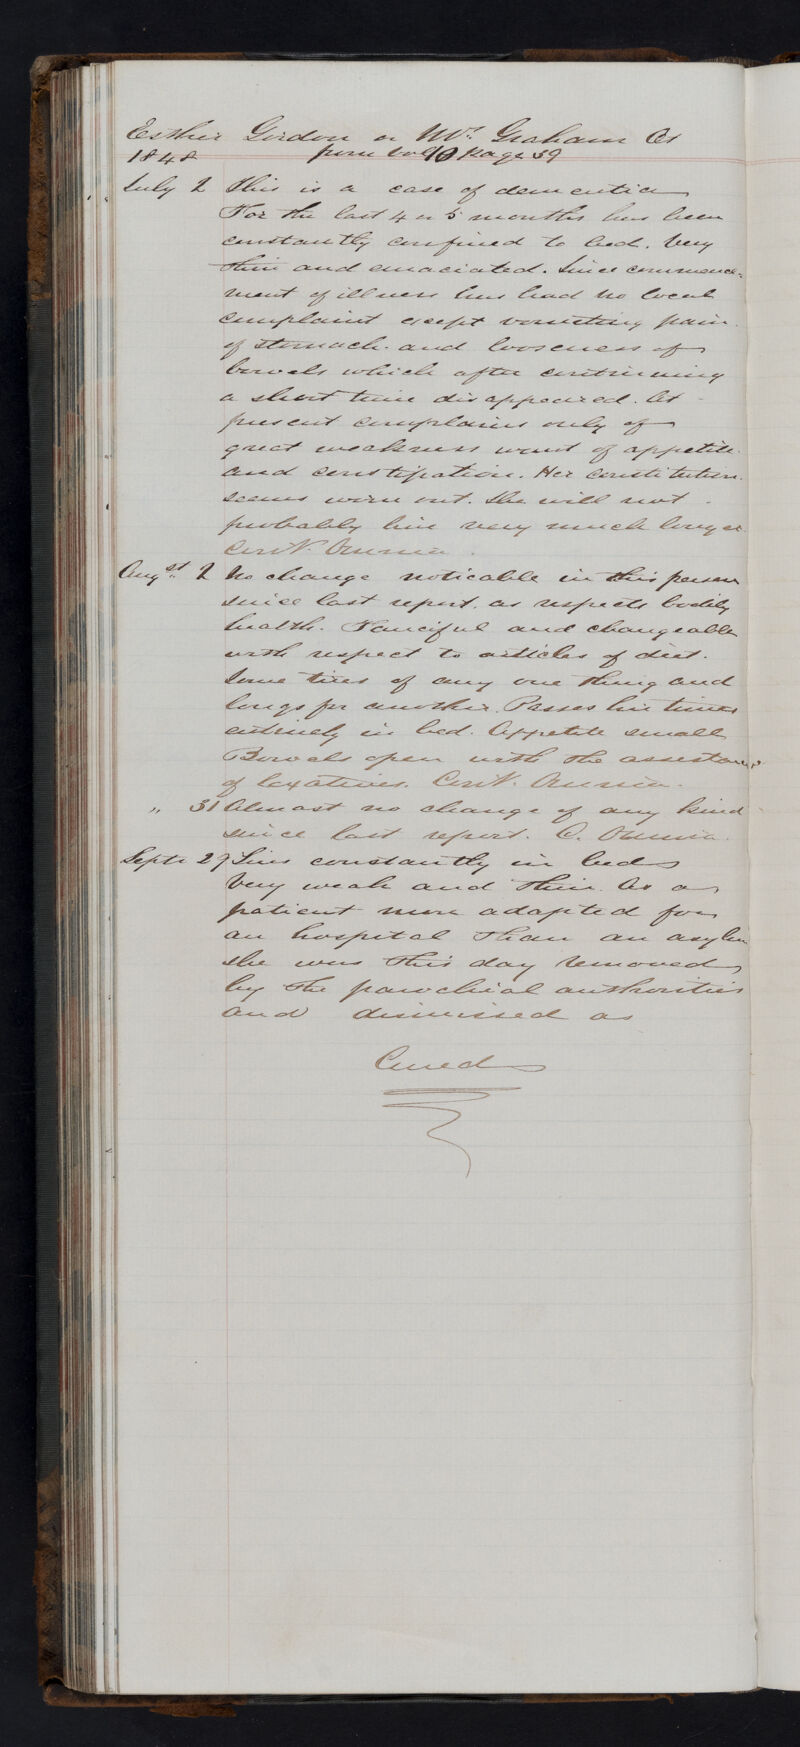 Esther Gordon or Mrs. Graham Ct
1848 from vol 10 page 39
July 2 This is a case of dementia
For the last 4 or 5 months has been
constantly confined to bed. Very
thin and emaciated. Since commence=
ment of illness has had no local
complaint except vomiting pain
of stomach and looseness of
bowels which after continuing
a short time disappeared. At
present complains only of
great weakness want of appetite
and constipation. Her constitution
seems worn out. She will not
probably live very much longer
Cont. Omnia.
Augst. 2 No change noticable in this person
since last report. as respects bodily
health. Fanciful and changeable
with respect to articles of diet.
Some tires of any one thing and
longs for another. Passes her time
entirely in bed. Appetite small
Bowels open with the assistance
of laxatives. Cont. Omnia.
" 31 Almost no change of any kind
since last report. C. Omnia.
Septr 29 Lies constantly in bed
Very weak and thin. As a
patient more adapted for
an hospital than an asylum
she was this day removed
by the parochial authorities
and dismissed as
Cured